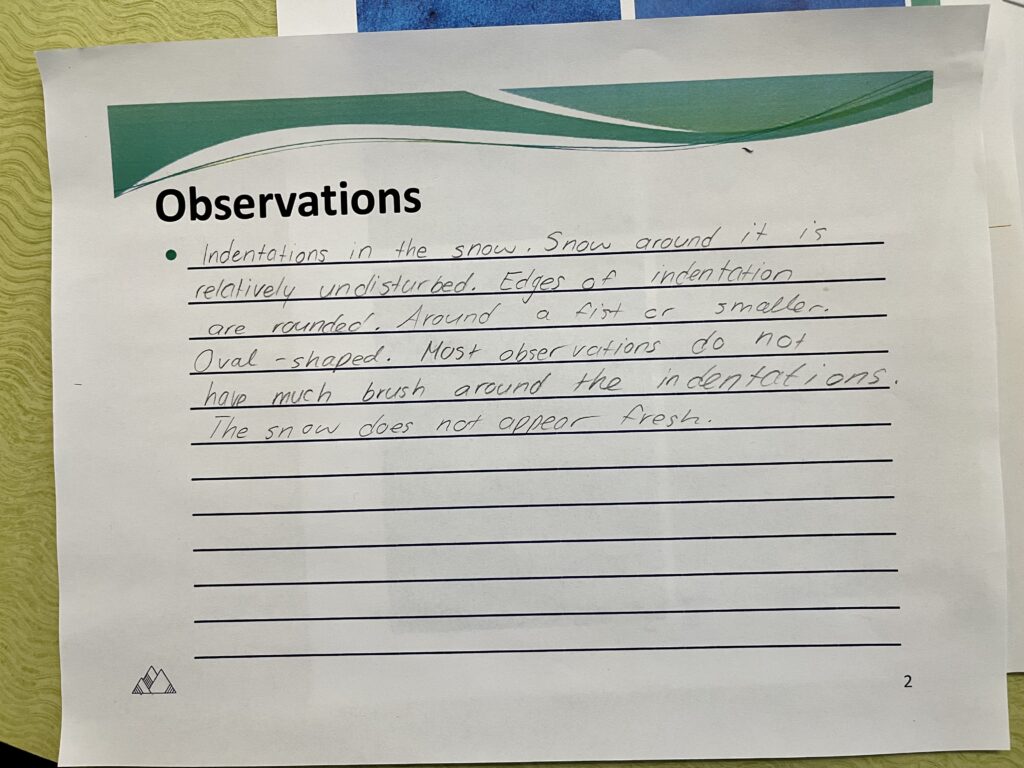 Observations
• Indentations in the snow. Snow around it is
relatively undisturbed. Edges of indentation
are rounded. Around a fist or smaller.
Oval-shaped. Most observations do not
have much brush around the indentations.
The snow does not appear fresh.
2